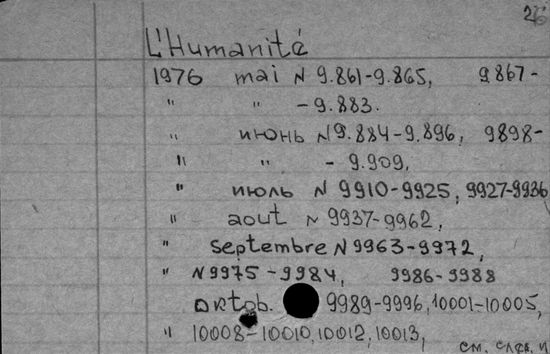 26
L'Humanité
1976 mai N 9.861-9.865, 9867-
" " -9.883.
" июнь N9.884-9.896, 9898-
" " - 9.909,
" июль N 9910-9925, 9927-9936
" aout N 9937-9962,
" septembre N 9963-9972,
" N9975-9984, 9986-9988
октоb. 9989-9996, 10001-10005,
" 10008-10010, 10012, 10013,
см. след. и